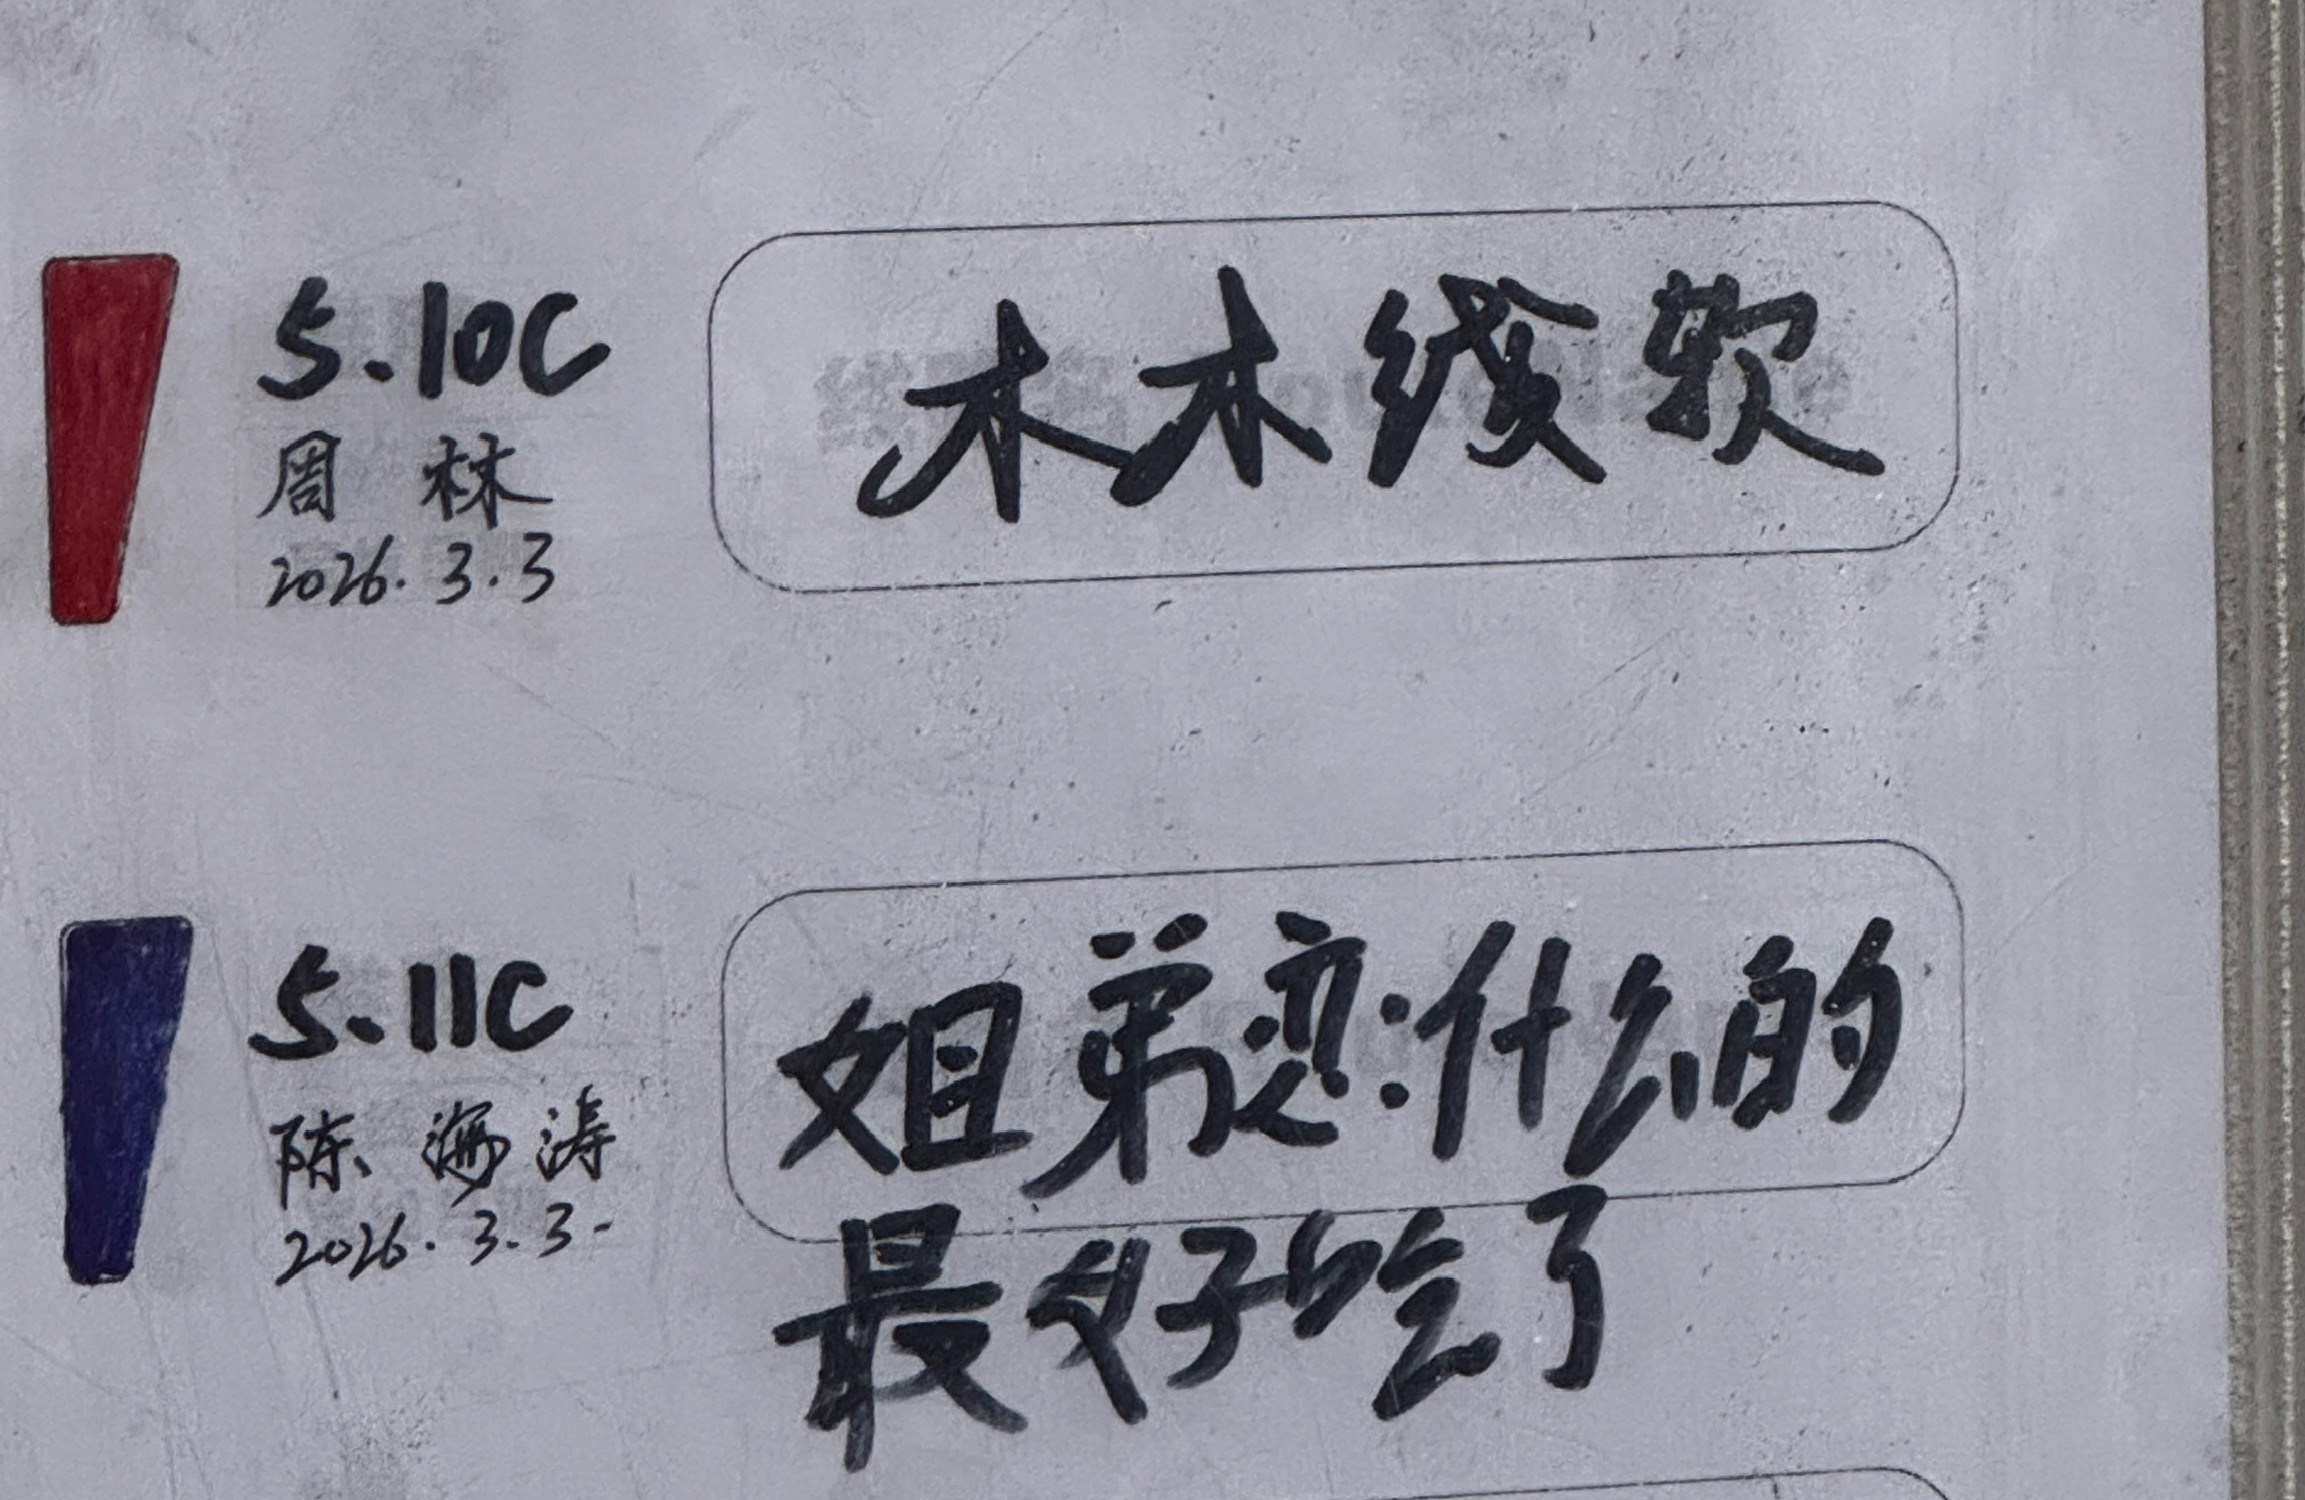 5.10C
周 林
2026.3.3
木木线软
5.11C
陈 海涛
2026.3.3.
姐弟恋:什么的
最好吃了